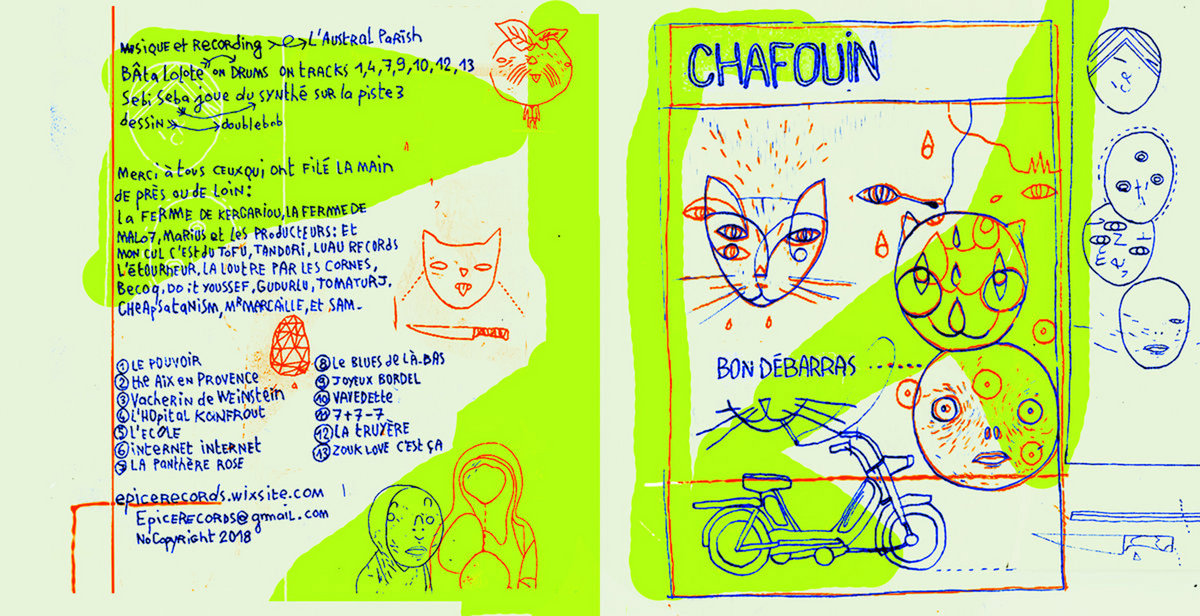 Musique et Recording L'Austral Parish
BÂta Lolote on DRUMS on TRACKS 1,4,7,9,10,12,13
Sebi Seba joue du SYNTHÉ SUR la piste 3
dessin doublebob
Merci à tous ceux qui ont filé la main
de près ou de loin:
La FERME DE KERGARIOU, LA FERME DE
MALO7, MARIUS et les PRODUCTEURS: Et
MON CUL C'EST DU TOFU, TANDORI, LUAU RECORDS
L'ÉTOURNEUR, LA LOUTRE PAR LES CORNES,
Becoq, DO it YOUSSEF, GUDURLU, TOMATURJ,
CHEAPSATANISM, Mr MARCAILLE, ET SAM-
1 LE POUVOIR
2 the Aix en Provence
3 Vacherin de Weinstein
4 L'HOpital
5 L'ECOLE
6 internet internet
7 LA PANTHÈRE ROSE
8 Le BLUES de LÀ-BAS
9 JOYEUX BORDEL
10 VAVEDETTE
11 7+7-7
12 LA TRUYÈRE
13 ZOUK LOVE C'EST ÇA
epicerecords.wixsite.com
EpiceRecords@gmail.com
NoCopyright 2018
CHAFOUIN
BON DÉBARRAS